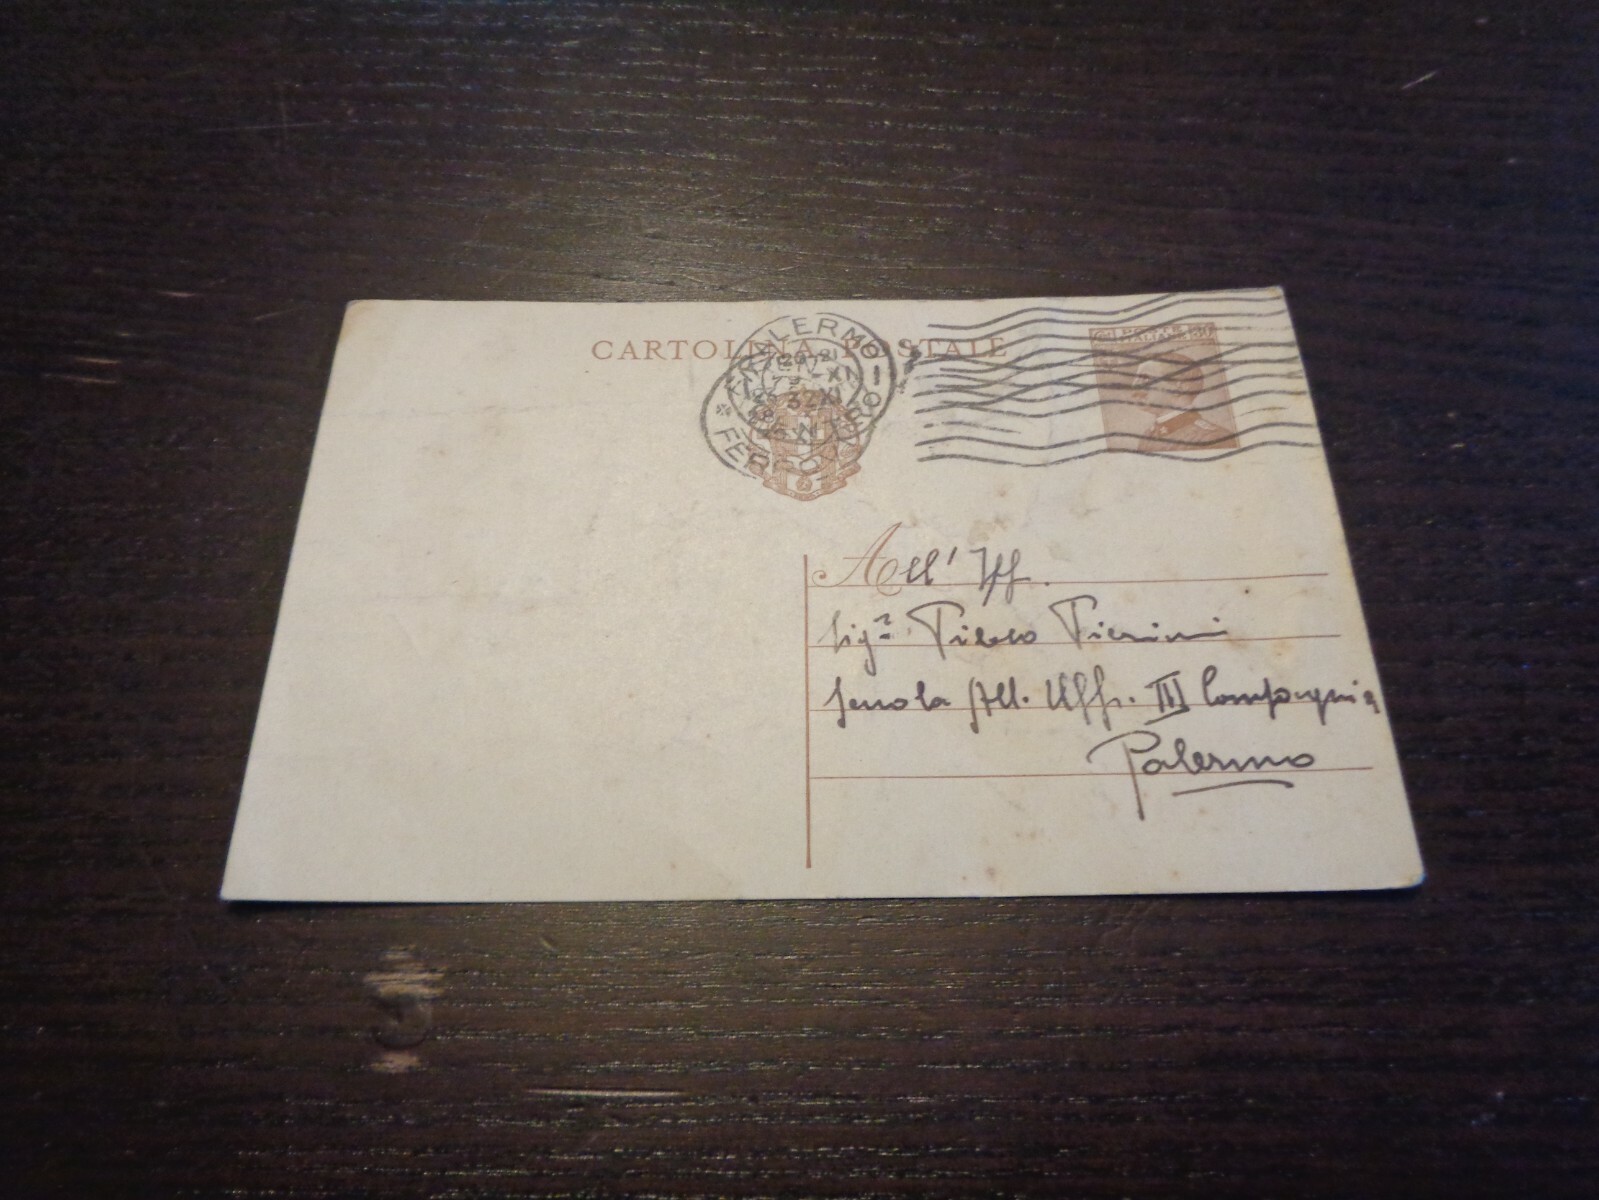 CARTOLINA POSTALE
PALERMO
FERROVIA
POSTE ITALIANE 30
All' Uff.
Sig.r Pietro Pierini
Scuola All. Uff. III Compagnia
Palermo